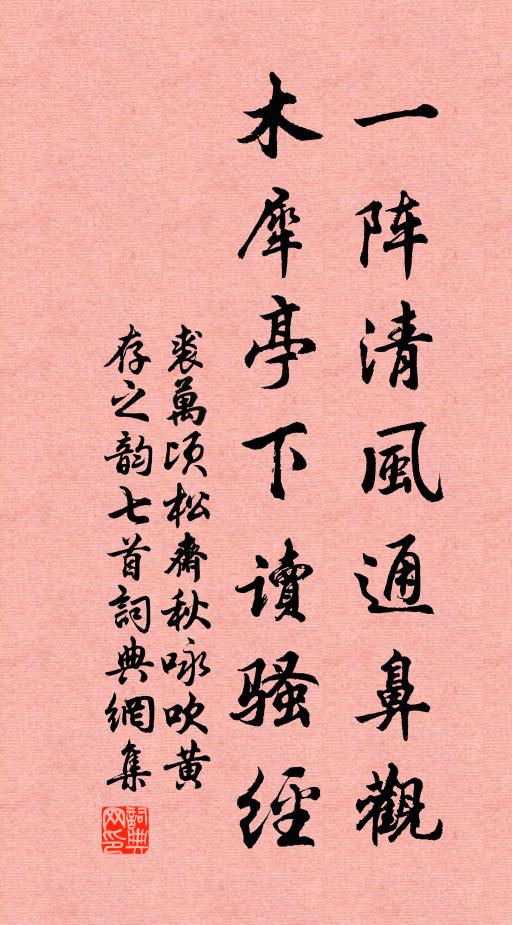 一阵清風通鼻觀
木犀亭下读騷經
裘萬頃松齋秋咏吹黄
存之韵七首詞典網集
詞典网印